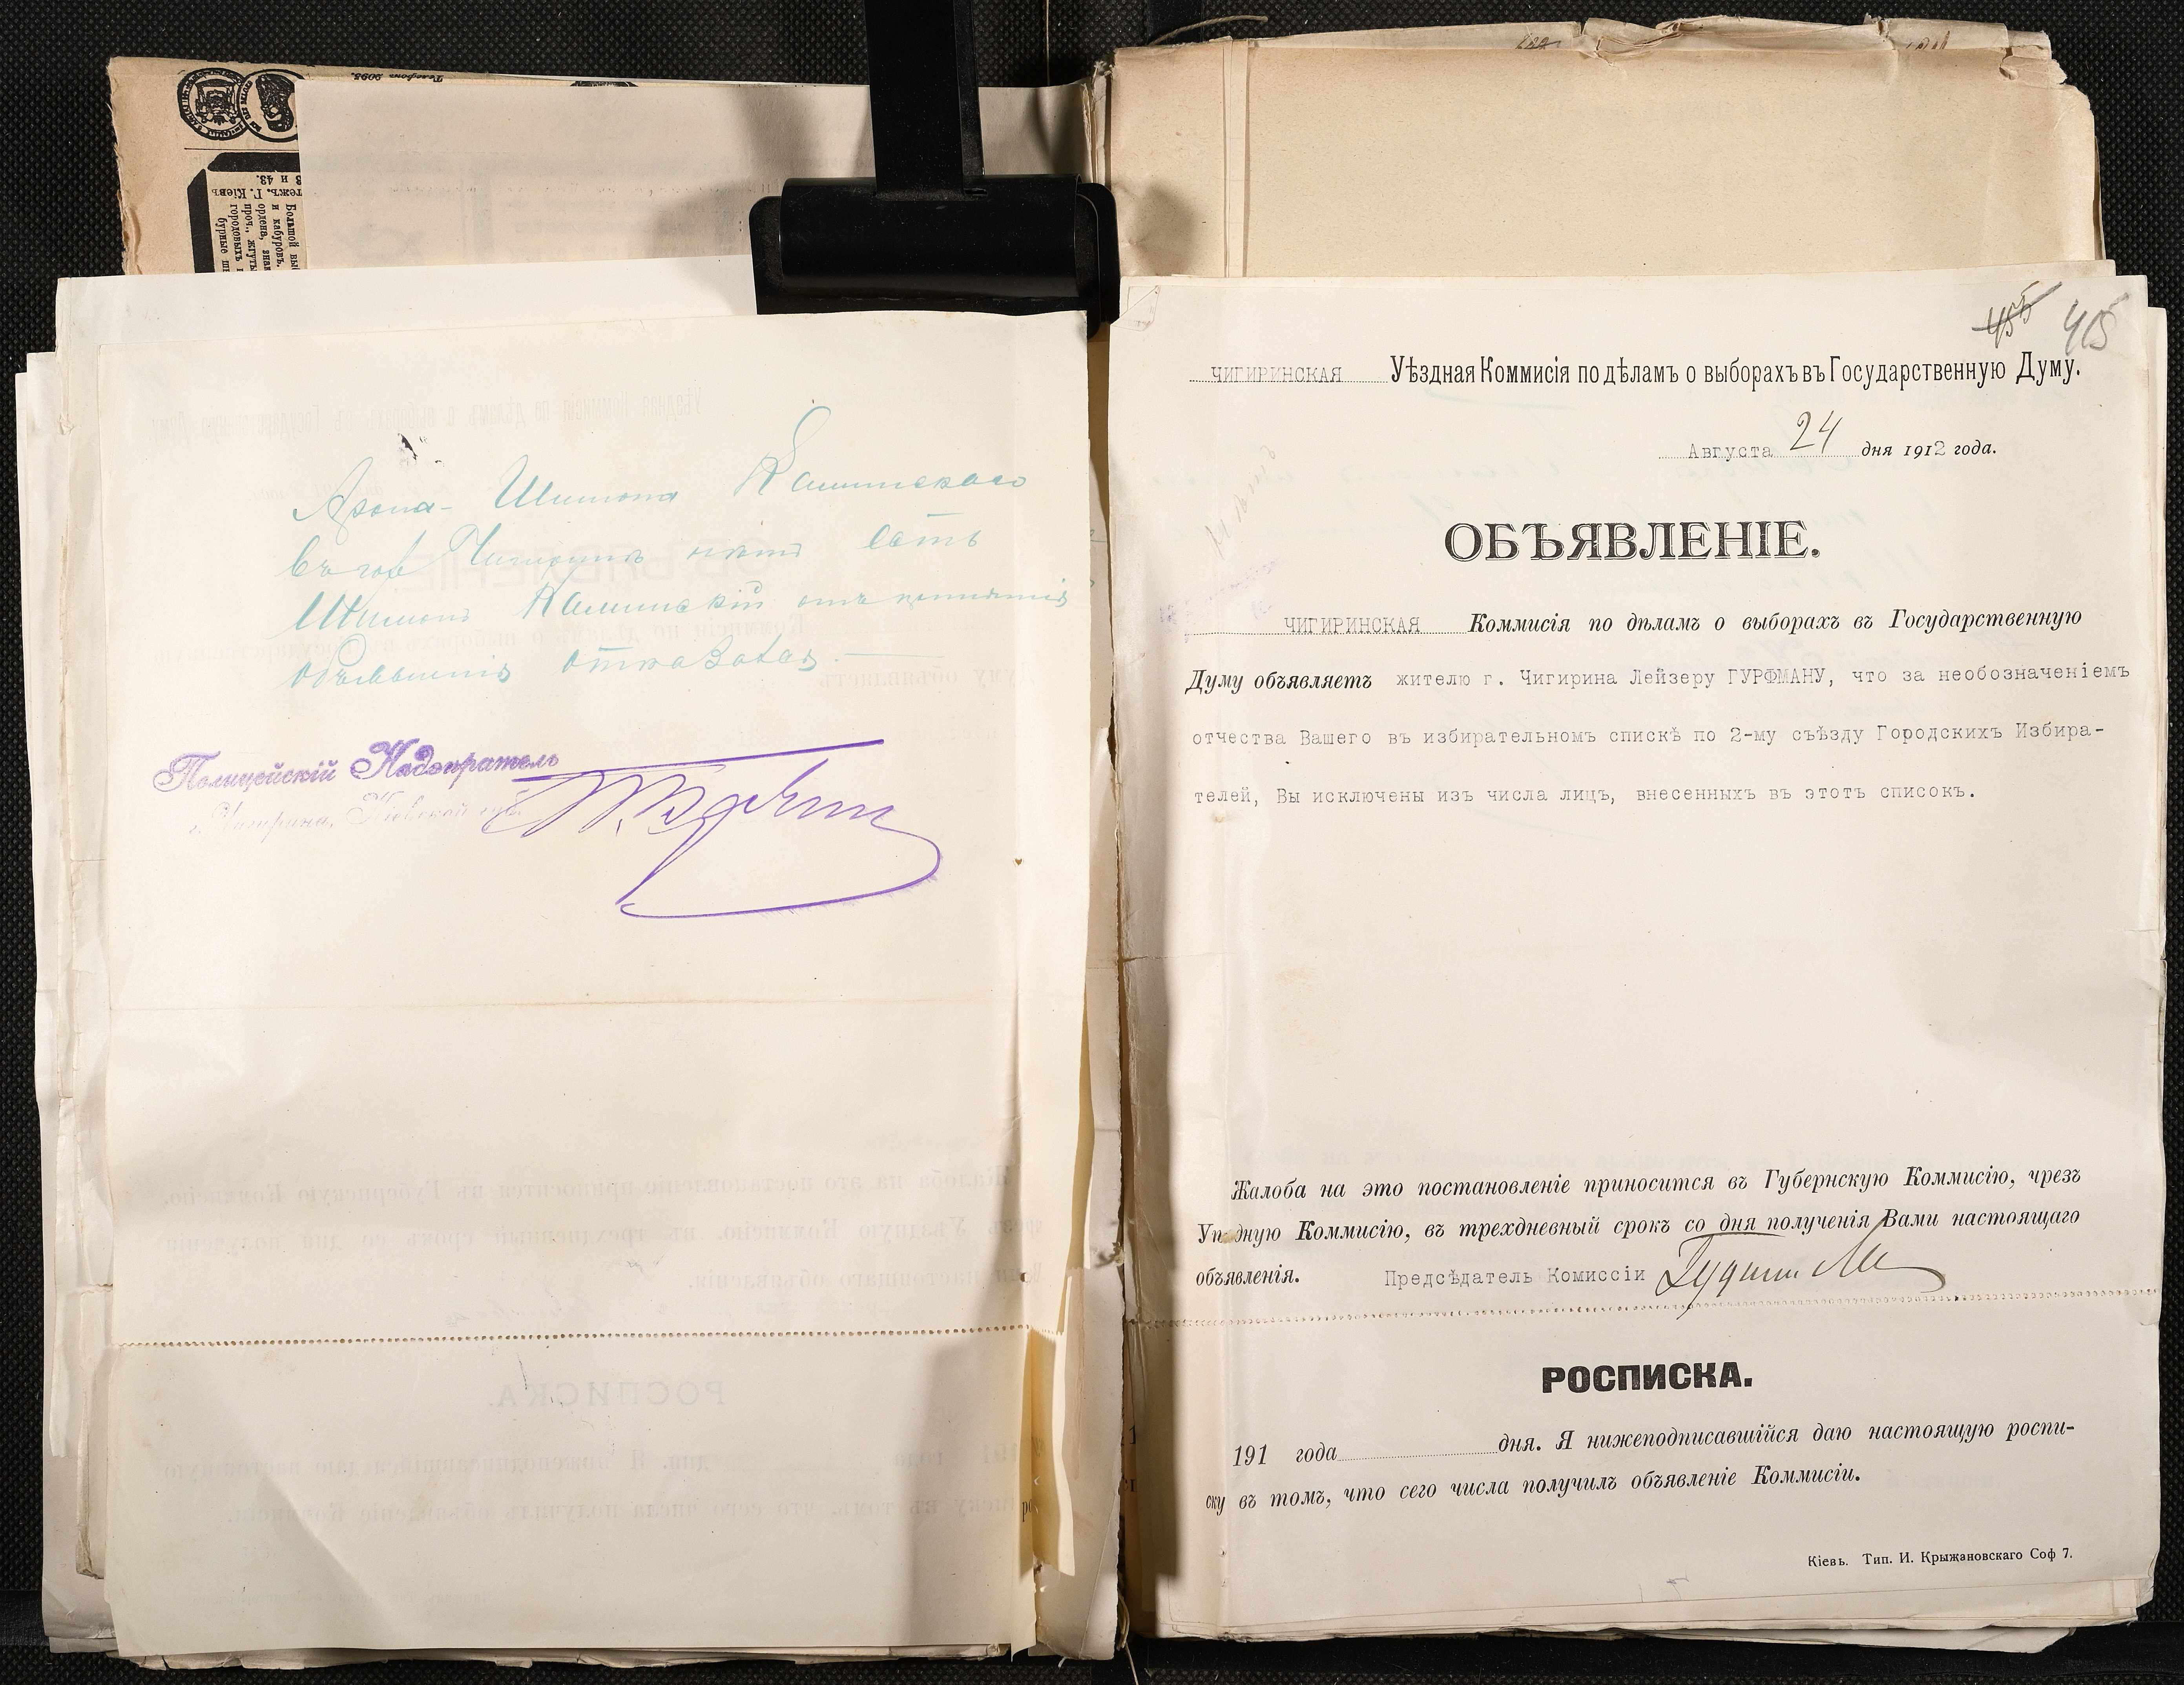 Телефонъ 2095.
Г. Кіевъ
и 43.
Большой
и кабуровъ.
ордена,
проч., жгуты
городовыхъ
бурные
Арона-Шимона Каминскаго
въ гор Чигиринѣ нѣтъ Есть
Шимонъ Каминскій отъ принятія
объявленія отказался.
Полицейскій Надзиратель
г. Чигирина, Кіевской губ.
455 415
ЧИГИРИНСКАЯ Уѣздная Коммисія по дѣламъ о выборахъ въ Государственную Думу.
Августа 24 дня 1912 года.
ОБЪЯВЛЕНІЕ.
ЧИГИРИНСКАЯ Коммисія по дѣламъ о выборахъ въ Государственную
Думу объявляетъ жителю г. Чигирина Лейзеру ГУРФМАНУ, что за необозначеніемъ
отчества Вашего въ избирательномъ спискѣ по 2-му съѣзду Городскихъ Избира-
телей, Вы исключены изъ числа лицъ, внесенныхъ въ этотъ списокъ.
Жалоба на это постановленіе приносится въ Губернскую Коммисію, чрезъ
Уѣздную Коммисію, въ трехдневный срокъ со дня полученія Вами настоящаго
объявленія. Предсѣдатель Комиссіи
РОСПИСКА.
191 года дня. Я нижеподписавшійся даю настоящую роспи-
ску въ томъ, что сего числа получилъ объявленіе Коммисіи.
Кіевъ. Тип. И. Крыжановскаго Соф 7.